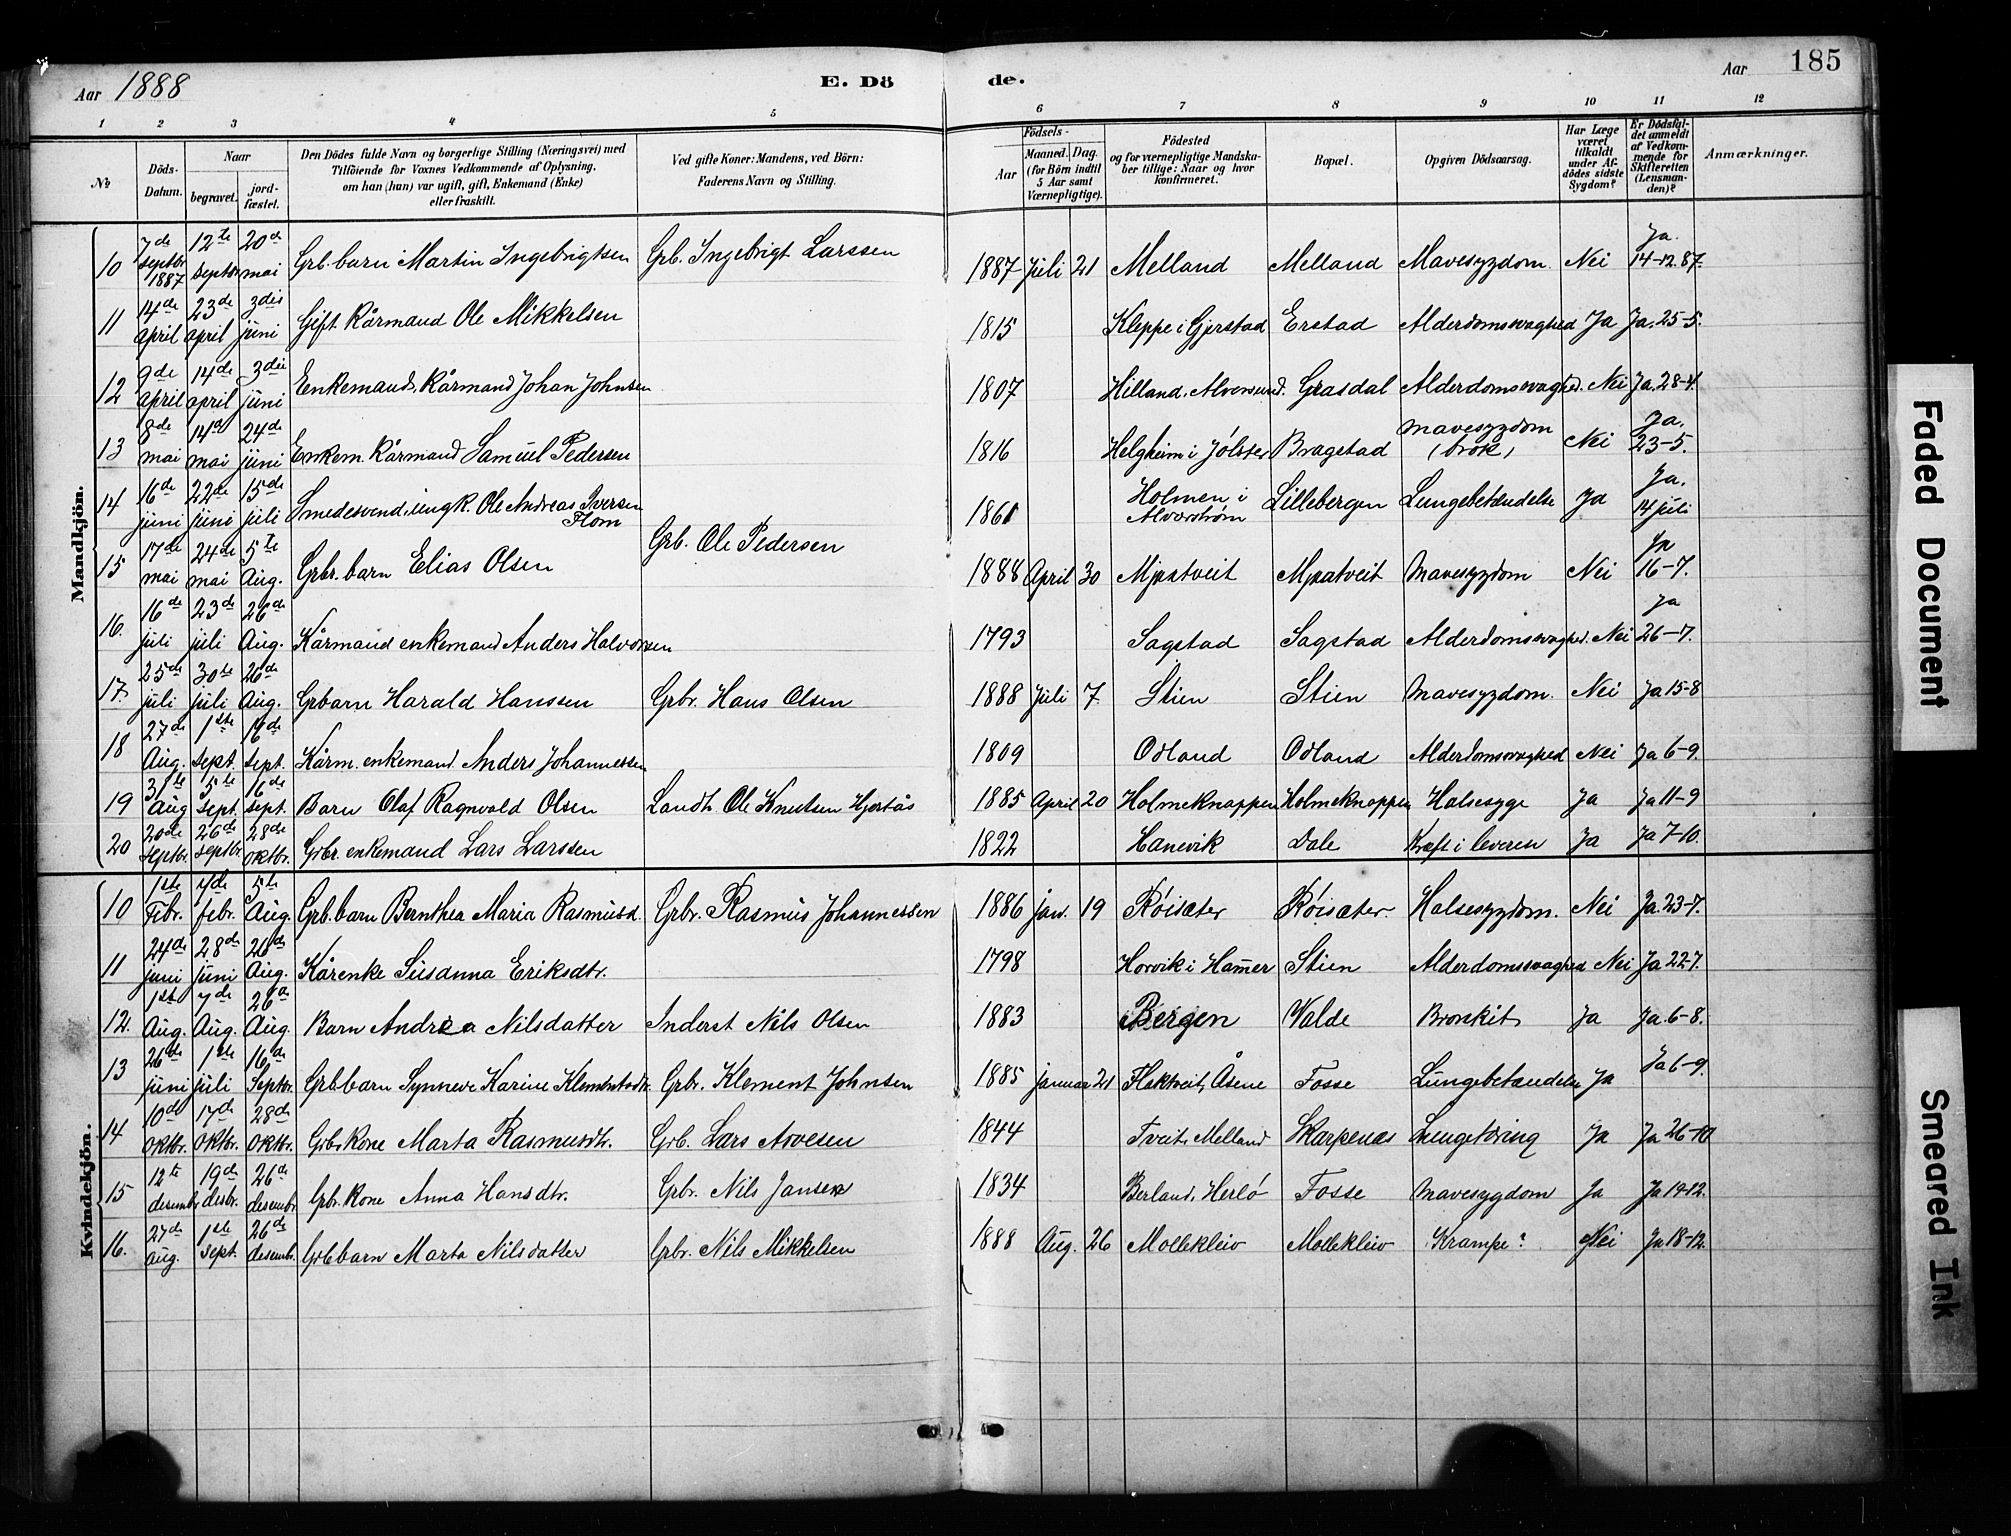 Aar 1888
E. Dö de.
Aar 185
1 2 3 4 5 6 7 8 9 10 11 12
№
Döds-Datum.
Naar
begravet.
jord-fæstet.
Den Dödes fulde Navn og borgerlige Stilling (Næringsvei) med
Tilföiende for Voxnes Vedkommende af Oplysning,
om han (hun) var ugift, gift, Enkemand (Enke)
eller fraskilt.
Ved gifte Koner: Mandens, ved Börn:
Faderens Navn og Stilling.
Födsels-
Aar
Maaned. Dag.
(for Börn indtil
5 Aar samt
Værnepligtige).
Födested
og for værnepligtige Mandska-
ber tillige: Naar og hvor
konfirmeret.
Bopæl.
Opgiven Dödsaarsag.
Har Læge
været
tilkaldt
under Af-
dödes sidste
Sygdom?
Er Dödsfal-
det anmeldt
af Vedkom-
mende for
Skifteretten
(Lensman-
den)?
Anmærkninger.
Mandkjön.
10 7de septbr 1887 12te septbr 20de mai Grb. barn Martin Ingebrigtsen Grb. Ingebrigt Larssen 1887 juli 21 Melland Melland Mavesygdom. Nei Ja. 14-12.87.
11 14de april 23de april 3die juni Gift Kårmand Ole Mikkelsen 1815 Kleppe i Gjerstad Erstad Alderdomssvaghed Ja Ja. 25-5.
12 9de april 14de april 3die juni Eenkemand, Kårmand Johan Johnsen 1807 Hilland, Alversund. Grasdal Alderdomssvaghed. Nei Ja. 28-4.
13 8de mai 14de mai 24de juni Enkem. Kårmand Samuel Pedersen 1816 Helgheim i Jølster Bragstad Mavesygdom (brok) Nei Ja. 23-5.
14 16de juni 22de juni 15de juli Smedesvend, ungk. Ole Andreas Iversen Flom 1861 Holmen i Alverstrøm Lillebergen Lungebetændelse Ja Ja. 14 juli
15 17de mai 24de mai 5te Aug. Grbr. barn Elias Olsen Grb. Ole Pedersen 1888 April 30 Mjatveit Mjatveit Mavesygdom Nei Ja 16-7.
16. 16de juli 23de juli 26de Aug. Kårmand enkemand Anders Halvorsen 1793 Sagstad Sagstad Alderdomssvaghed. Nei Ja 26-7.
17. 25de juli 30te juli 26de Aug. Grbarn Harald Hanssen Grbr. Hans Olsen 1888 juli 7. Stien Stien Mavesygdom. Nei Ja 15-8
18 27de Aug. 1ste sept. 16de sept. Kårm. enkemand Anders Johannessen 1809 Odland Odland Alderdomssvaghed Nei Ja 6-9.
19 31te Aug 5te sept. 16de sept. Barn Olaf Ragnvald Olsen Landh. Ole Knutsen Hjertås 1885 April 20 Holmeknappen Holmeknappen Halsesyge Ja Ja 11-9
20 20de septbr. 26de septbr. 28de oktbr. Grbr. enkemand Lars Larssen 1822 Hanevik Dale Kræft i leveren Ja Ja 7-10.
Kvindekjön.
10 1ste Febr. 7de febr. 5te Aug. Grb. barn Bernthea Maria Rasmusd. Grbr. Rasmus Johannessen 1886 jan. 19 Røisæter Røisæter. Halsesygdom. Nei Ja. 23-7.
11 24de juni 28de juni 26de Aug. Kårenke Susanna Eriksdtr. 1798 Horvik i Hamer Stien Alderdomssvaghed Nei Ja 22-7.
12. 1ste Aug. 7de Aug. 26de Aug Barn Andrea Nilsdatter Inderst Nils Olsen 1883 Bergen Valde Bronkit Ja Ja. 6-8.
13 26de juni 1ste juli 16de Septbr. Grbbarn Synneve Karine Klementsdtr. Grbr. Klement Johnsen 1885 januar 21 Flaktveit, Åsene Fosse Lungebetændelse Ja Ja 6-9.
14 10de oktbr. 17de oktbr. 28de oktbr. Grbr kone Marta Rasmusdtr. Grb. Lars Arvesen 1844 Tveit, Melland Skarpenes Lungetæring Ja Ja 26-10
15 12te desembr. 19de desbr. 26de desembr. Grbr. kone Anna Hansdtr. Grbr. Nils Jansen 1834 Berland, Herlø Fosse Mavesygdom Ja Ja 19-12.
16. 27de aug. 1ste sept. 26de desembr. Grbbarn Marta Nilsdatter Grbr. Nils Mikkelsen 1888 Aug. 26 Mollekleiv Mollekleiv Krampe? Nei Ja 18-12.
Faded Document
Smeared Ink